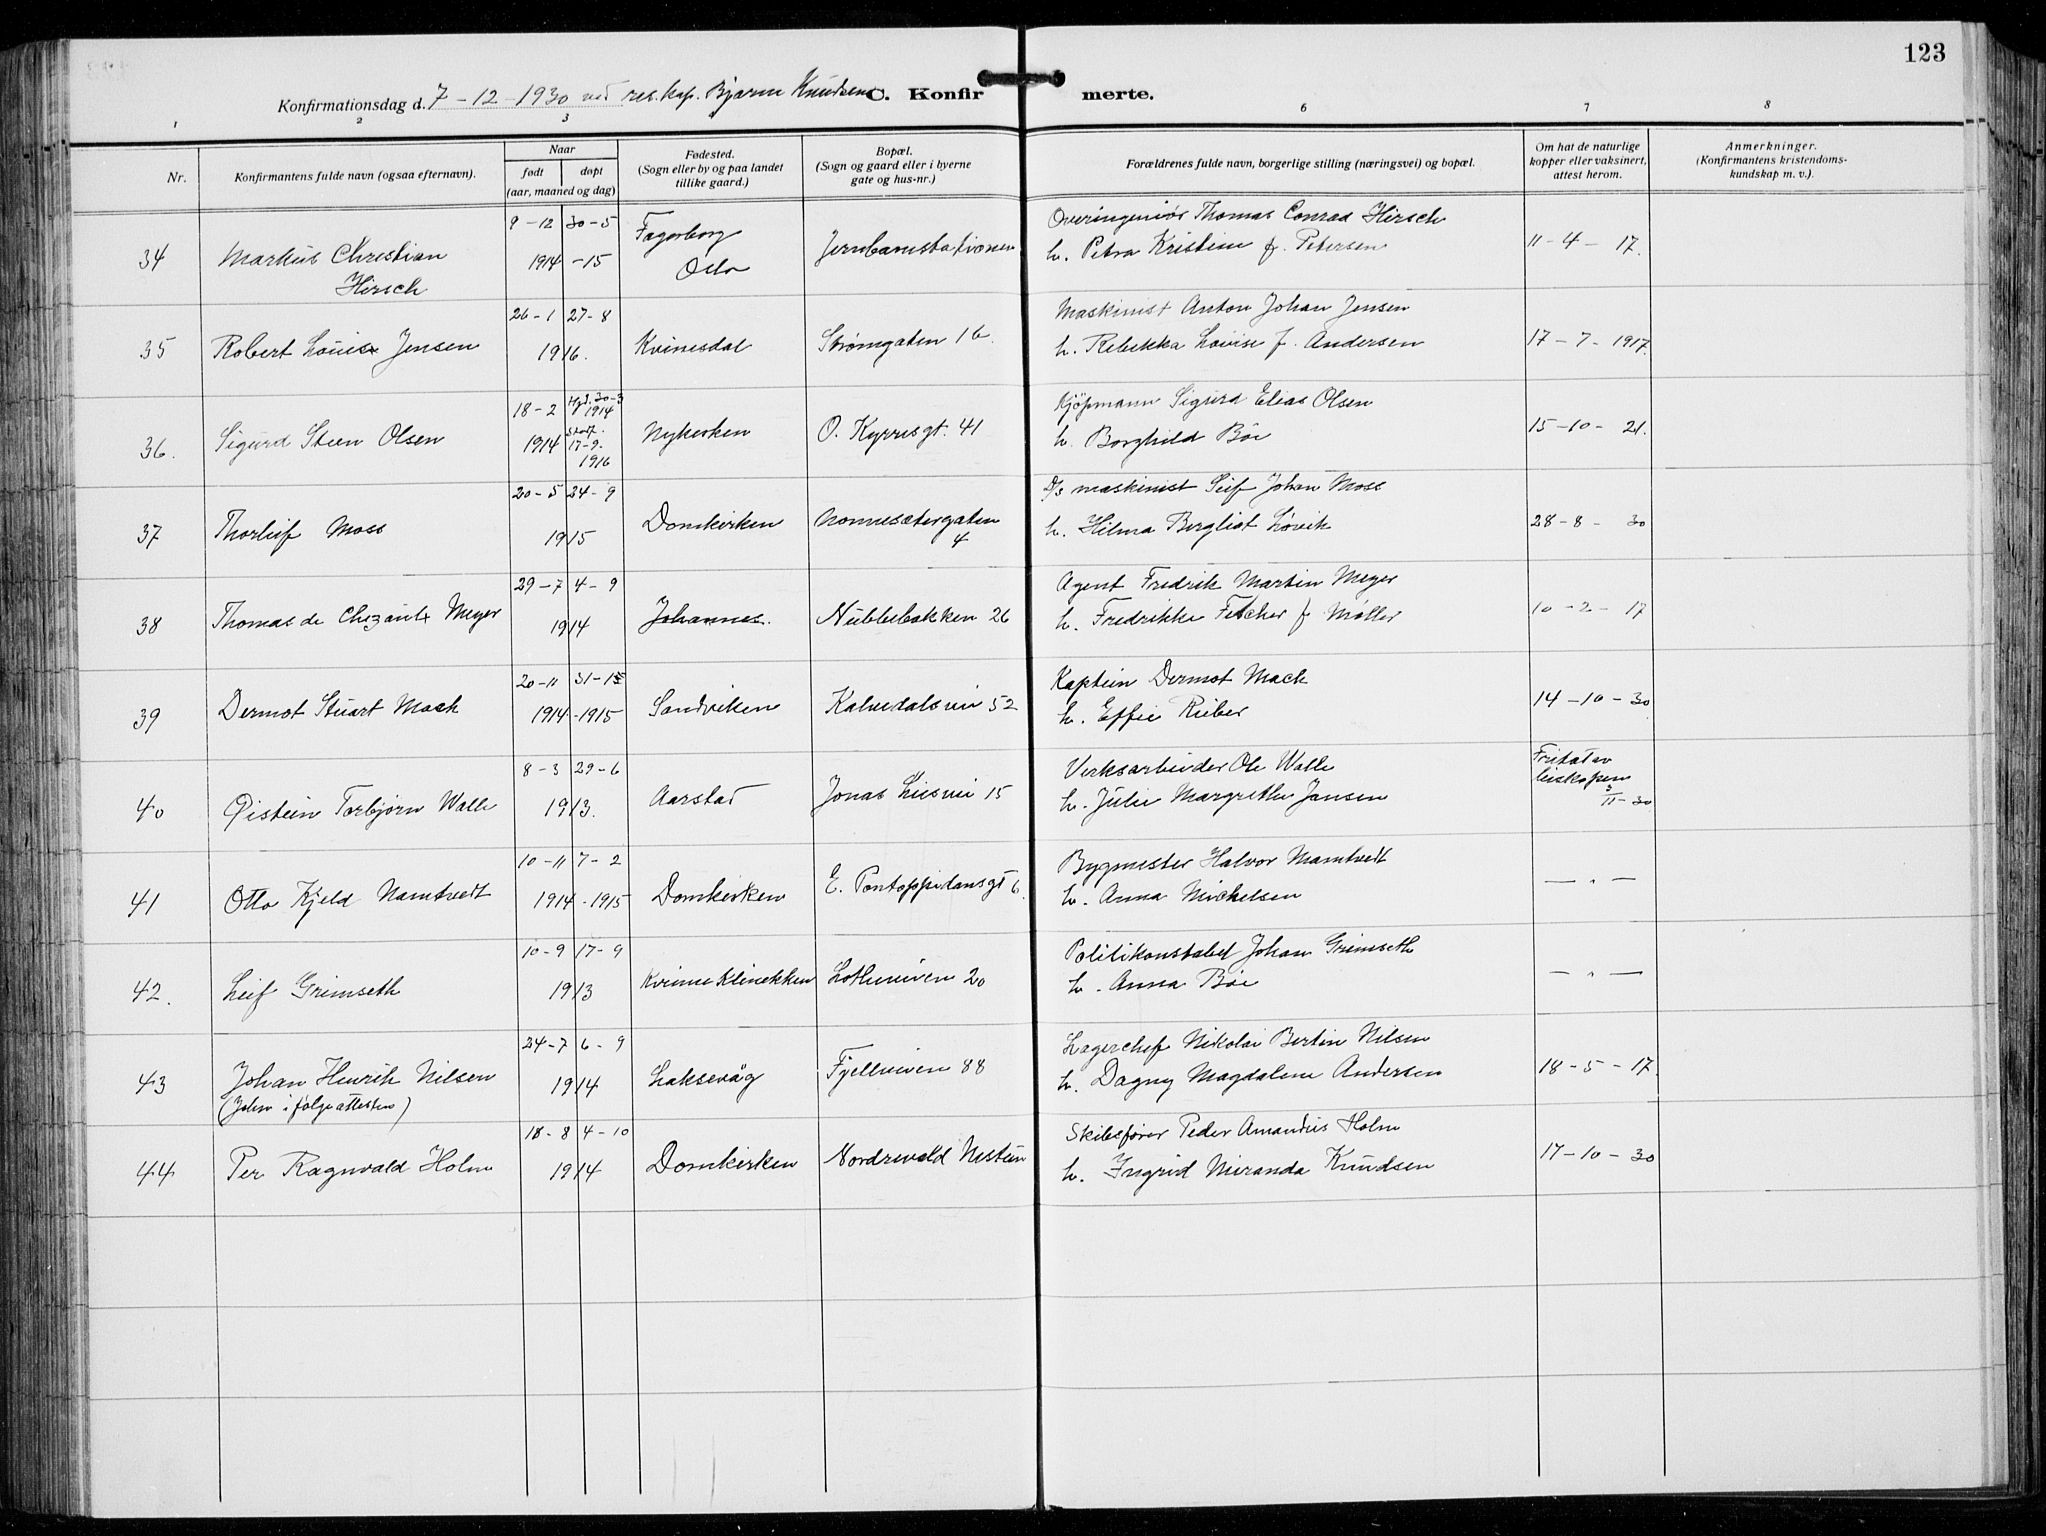 123
Konfirmationsdag d. 7-12-1930 ved res. kap. Bjarne Knudsen C. Konfirmerte.
1 2 3 6 7 8
Nr.
Konfirmantens fulde navn (ogsaa efternavn).
Naar
født døpt
(aar, maaned og dag)
Fødested.
(Sogn eller by og paa landet
tillike gaard.)
Bopæl.
(Sogn og gaard eller i byerne
gate og hus-nr.)
Forældrenes fulde navn, borgerlige stilling (næringsvei) og bopæl.
Om hat de naturlige
kopper eller vaksinert,
attest herom.
Anmerkninger.
(Konfirmantens kristendoms-
kundskap m. v.).
34 Markus Christian
Hirsch
9-12 1914
30-5 -15
Fagerborg
Oslo
Jernbanestationen
Overingeniør Thomas Conrad Hirsch
h. Petra Kristine f. Petersen
11-4-17.
35 Robert Louis Jensen
26-1 27-8
1916.
Kvinesdal
Strømgaten 16
Maskinist Anton Johan Jensen
h. Rebekka Lovise f. Andersen
17-7-1917.
36. Sigurd Steen Olsen
18-2 1914
Hjd. 30-3
1914
Stadf.
17-9.
1916
Nykirken
O. Kyrresgt. 41
Kjøpmann Sigurd Elias Olsen
h. Borghild Bøe
15-10-21.
37 Thorleif Moss
20-5 24-9
1915
Domkirken
Nonnesætergaten
4
D/s maskinist Leif Johan Moss
h. Hilma Bergliot Løvik
28-8-30
38 Thomas de Chezaulx Meyer
29-7 4-9
1914
Johannes.
Nubbebakken 26
Agent Fredrik Martin Meyer
h. Fredrikke Fischer f. Møller
10-2-17
39 Dermot Stuart Mack
20-11 1914
31-1 -1915
Sandviken
Kalvedalsvei 52
Kaptein Dermot Mack
h. Effie Rieber
14-10-30
40 Øistein Torbjørn Walle
8-3 29-6
1913.
Aarstad
Jonas Liesvei 15
Verksarbeider Ole Walle
h. Julie Margrethe Jansen
Fritat av
biskopen
3/11-30
41 Otto Kjeld Namtvedt
10-11 7-2
1914-1915
Domkirken
E. Pontoppidansgt 6.
Bygmester Halvor Namtvedt
h. Anna Michelsen
— " —
42. Leif Grimseth
10-9 17-9
1913
Kvinneklinikken
Lotheveien 20
Politikonstabel Johan Grimseth
h. Anna Bøe
— " —
43 Johan Henrik Nilsen
(John i følge attesten)
24-7 6-9
1914
Laksevåg
Fjellveien 88
Lagerchef Nikolai Bertin Nilsen
h. Dagny Magdalene Andersen
18-5-17.
44 Per Ragnvald Holm
18-8 4-10
1914
Domkirken
Nordrevold Nestun
Skibsfører Peder Amandus Holm
h. Ingrid Miranda Knudsen
17-10-30